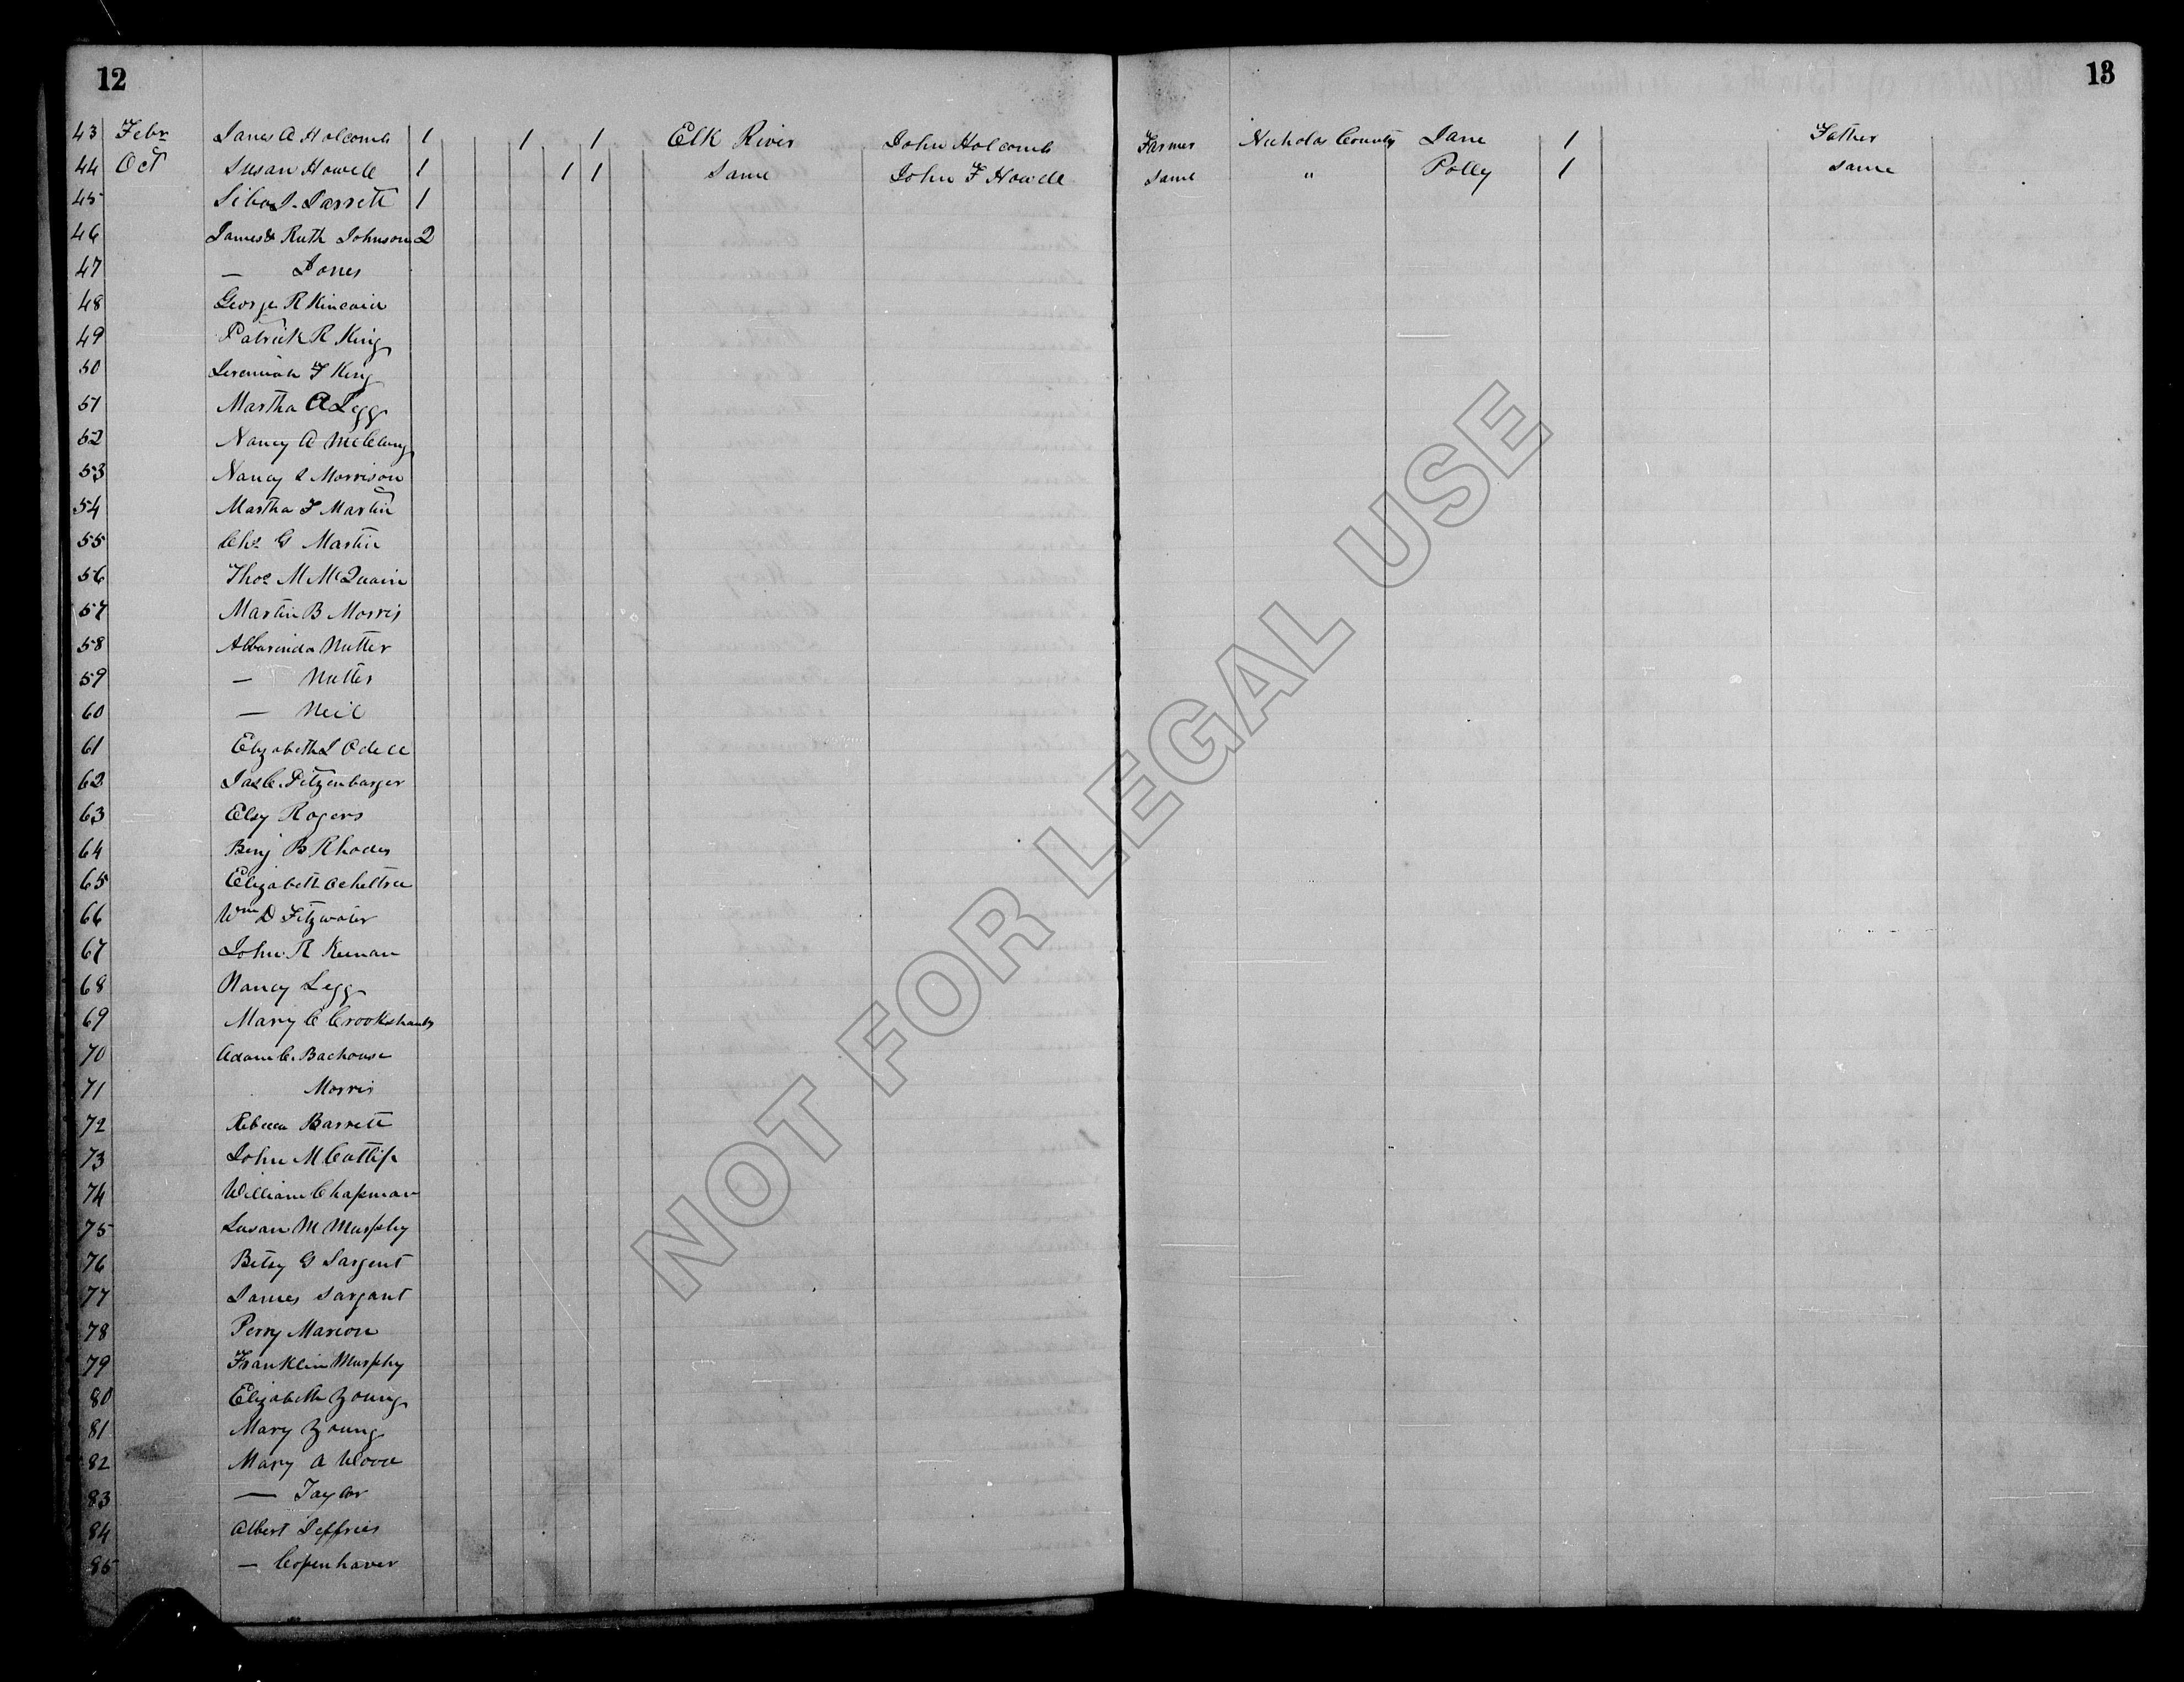 12
13
43 Febr James A Holcomb 1 1 1 Elk River John Holcomb Farmer Nicholas County Jane 1 Father
44 Oct Susan Howell 1 1 1 Same John F Howell same " Polly 1 same
45 Jarrett 1
46 James & Ruth Johnson 2
47 — Jones
48 George R Kincaid
49 Patrick R King
50 Jeremiah F King
51 Martha A Legg
52 Nancy A McClung
53 Nancy Morrison
54 Martha F Martin
55 Chs G Martin
56 Thos M McQuain
57 Martin B Morris
58 Nutter
59 — Nutter
60 — Neil
61 Elizabeth J Odell
62 Jas C. Pitzenbarger
63 Elsy Rogers
64 Benj B Rhodes
65 Elizabeth Ocheltree
66 Wm D Fitzwater
67 John R Keenan
68 Nancy Legg
69 Mary C Crookshanks
70 Adam C. Bachouse
71 Morris
72 Rebecca Barrett
73 John M Cutlip
74 William Chapman
75 Susan M Murphy
76 Betsy G Sargent
77 James Sargant
78 Perry Marion
79 Franklin Murphy
80 Elizabeth Young
81 Mary Young
82 Mary A Wood
83 — Taylor
84 Albert Jeffries
85 — Copenhaver
NOT FOR LEGAL USE